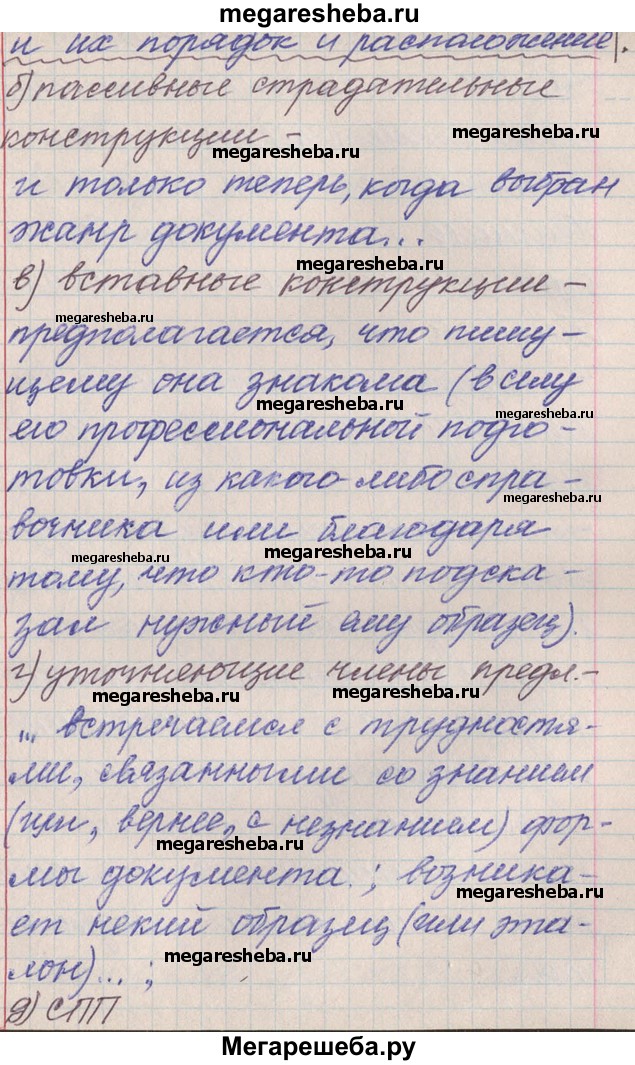 megaresheba.ru
и их порядок и расположение|.
б) пассивные страдательные
конструкции –
megaresheba.ru
megaresheba.ru
и только теперь, когда выбран
жанр документа...
megaresheba.ru
в) вставные конструкции –
megaresheba.ru
предполагается, что пишу-
щему она знакома (в силу
megaresheba.ru
megaresheba.ru
его профессиональной подго-
товки, из какого-либо спра-
megaresheba.ru
вочника или благодаря
megaresheba.ru
megaresheba.ru
тому, что кто-то подска-
зал нужный ему образец).
г) уточняющие члены предл.-
megaresheba.ru
megaresheba.ru
... встречаемся с трудностя-
ми, связанными со знанием
(или, вернее, с незнанием) фор-
megaresheba.ru
мы документа.; возника-
megaresheba.ru
ет некий образец (или эта-
megaresheba.ru
лон)... ;
д) СПП
Мегарешеба.ру